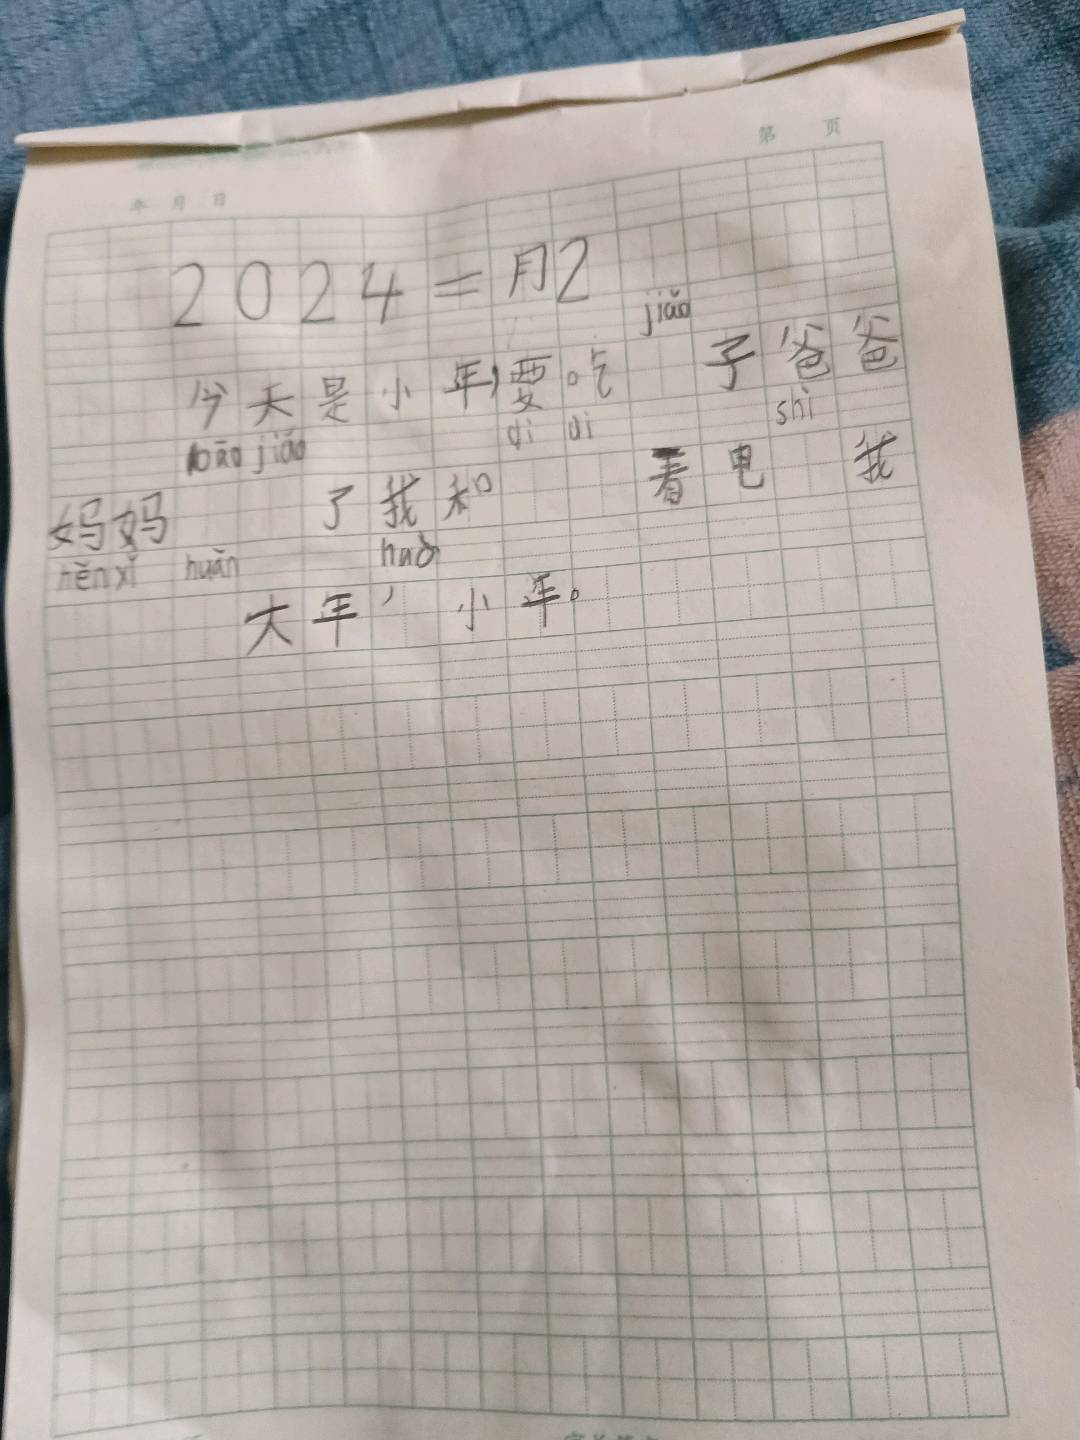 第 页
年 月 日
2024二月2
jiǎo
今天是小年,要吃 子爸爸
bāo jiǎo di di shì
妈妈 了我和 看电 我
hěn xǐ huān huò
大年, 小年。